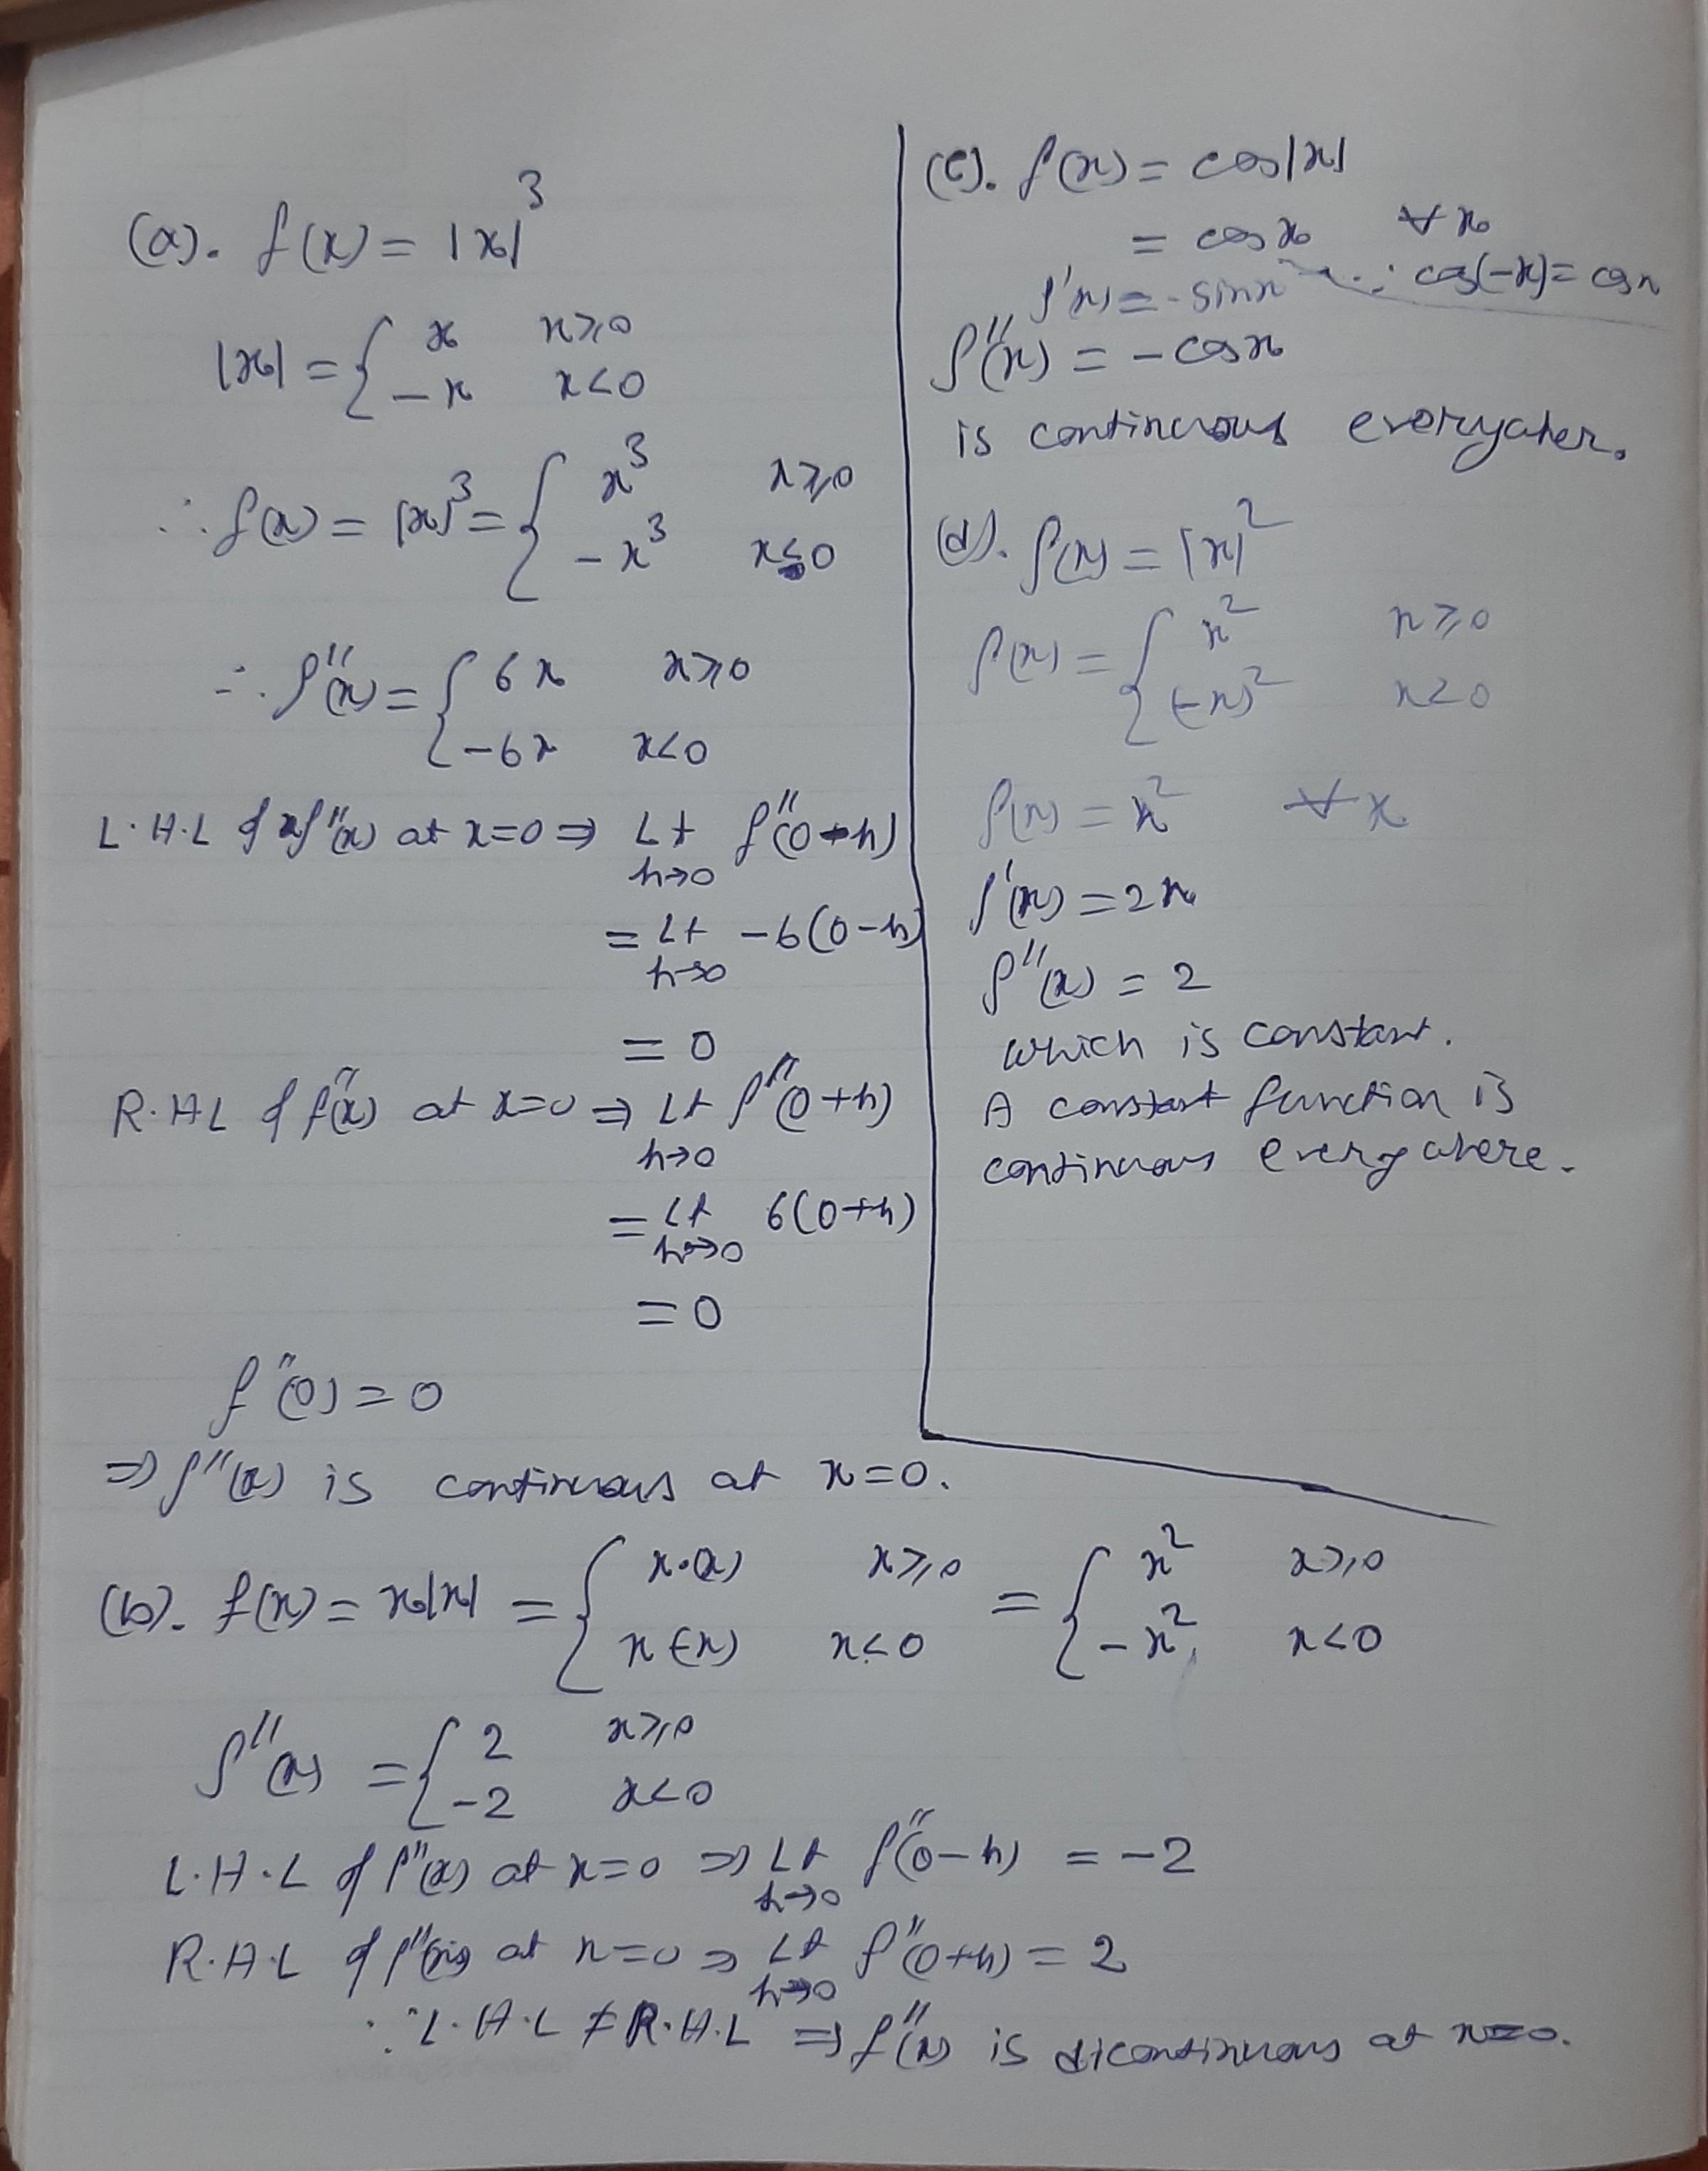 (a). f(x) = |x|³
|x| = { x   x≥0
-x   x<0
∴ f(x) = |x|³ = { x³   x≥0
-x³   x≤0
∴ f''(x) = { 6x   x≥0
-6x   x<0
L.H.L of f''(x) at x=0 ⇒ Lt f''(0-h)
h→0
= Lt -6(0-h)
h→0
= 0
R.H.L of f''(x) at x=0 ⇒ Lt f''(0+h)
h→0
= Lt 6(0+h)
h→0
= 0
f''(0) = 0
⇒ f''(x) is continuous at x=0.
(c). f(x) = cos|x|
= cos x   ∀ x
f'(x) = -sinx   ∵ cos(-x) = cosx
f''(x) = -cosx
is continuous everywher.
(d). f(x) = |x|²
f(x) = { x²   x≥0
(-x)²   x<0
f(x) = x²   ∀ x
f'(x) = 2x
f''(x) = 2
which is constant.
A constant function is
continuous everywhere.
(b). f(x) = x|x| = { x.(x)   x≥0 = { x²   x≥0
x(-x)   x<0   -x²,   x<0
f''(x) = { 2   x≥0
-2   x<0
L.H.L of f''(x) at x=0 ⇒ Lt f''(0-h) = -2
h→0
R.H.L of f''(x) at x=0 ⇒ Lt f''(0+h) = 2
h→0
∵ L.H.L ≠ R.H.L ⇒ f''(x) is dicontinuous at x=0.